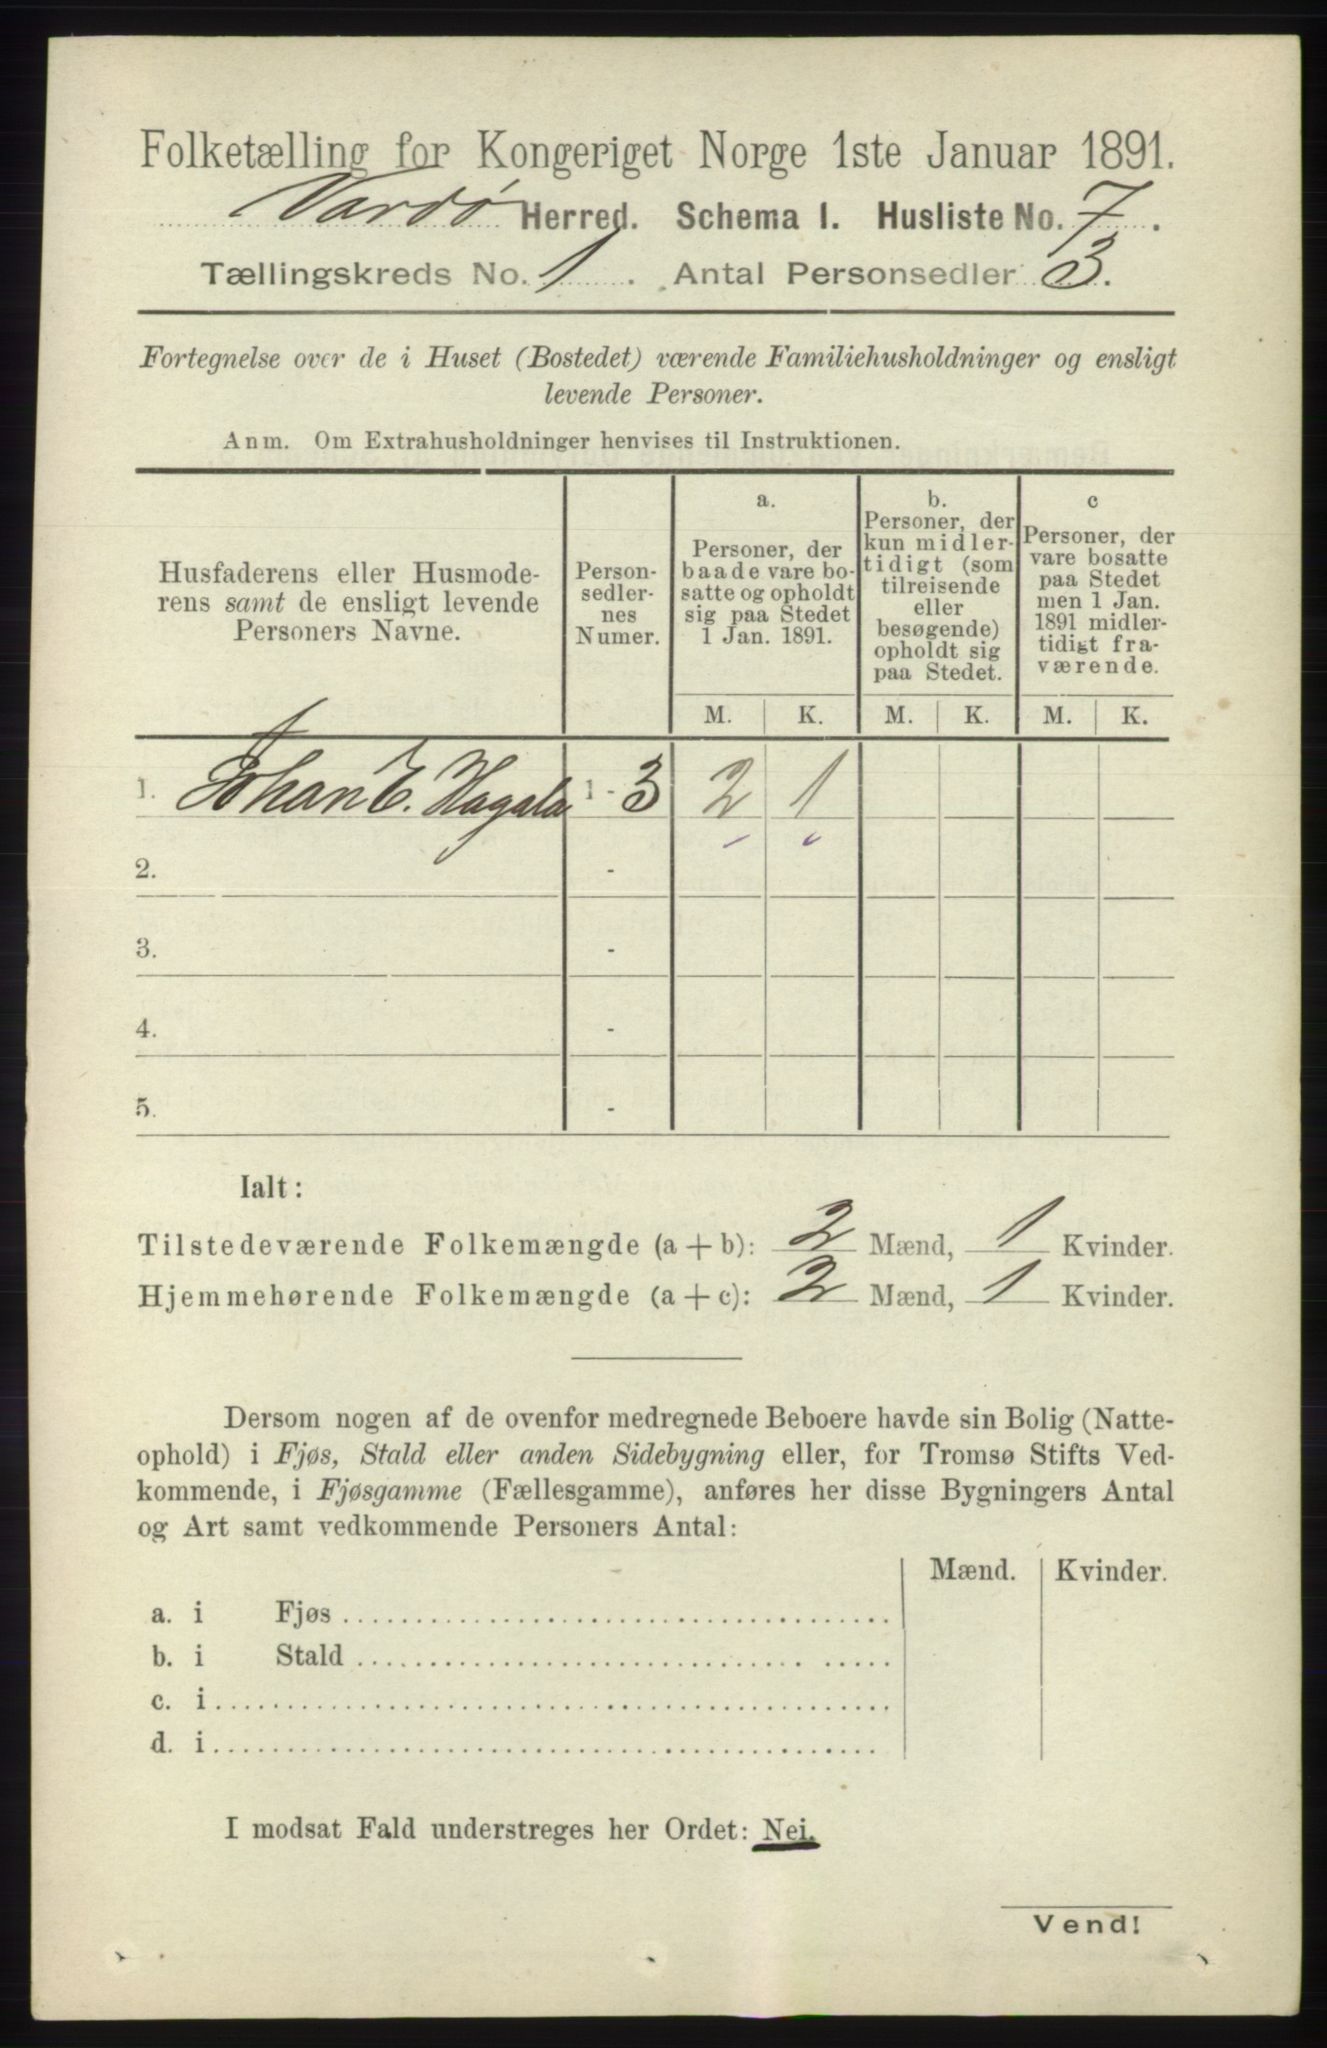 Folketælling for Kongeriget Norge 1ste Januar 1891.
Vardø Herred. Schema I. Husliste No. 7.
Tællingskreds No. 1. Antal Personsedler 3.
Fortegnelse over de i Huset (Bostedet) værende Familiehusholdninger og ensligt
levende Personer.
Anm. Om Extrahusholdninger henvises til Instruktionen.
Husfaderens eller Husmode-
rens samt de ensligt levende
Personers Navne.
Person-
sedler-
nes
Numer.
a.
Personer, der
baade vare bo-
satte og opholdt
sig paa Stedet
1 Jan. 1891.
b.
Personer, der
kun midler-
tidigt (som
tilreisende
eller
besøgende)
opholdt sig
paa Stedet.
c
Personer, der
vare bosatte
paa Stedet
men 1 Jan.
1891 midler-
tidigt fra-
værende.
M. K. M. K. M. K.
1. Johan E. Hagala 1 - 3 2 1
2. -
3. -
4. -
5. -
Ialt:
Tilstedeværende Folkemængde (a + b): 2 Mænd, 1 Kvinder.
Hjemmehørende Folkemængde (a + c): 2 Mænd, 1 Kvinder.
Dersom nogen af de ovenfor medregnede Beboere havde sin Bolig (Natte-
ophold) i Fjøs, Stald eller anden Sidebygning eller, for Tromsø Stifts Ved-
kommende, i Fjøsgamme (Fællesgamme), anføres her disse Bygningers Antal
og Art samt vedkommende Personers Antal:
Mænd. Kvinder.
a. i Fjøs
b. i Stald
c. i
d. i
I modsat Fald understreges her Ordet: Nei.
Vend!